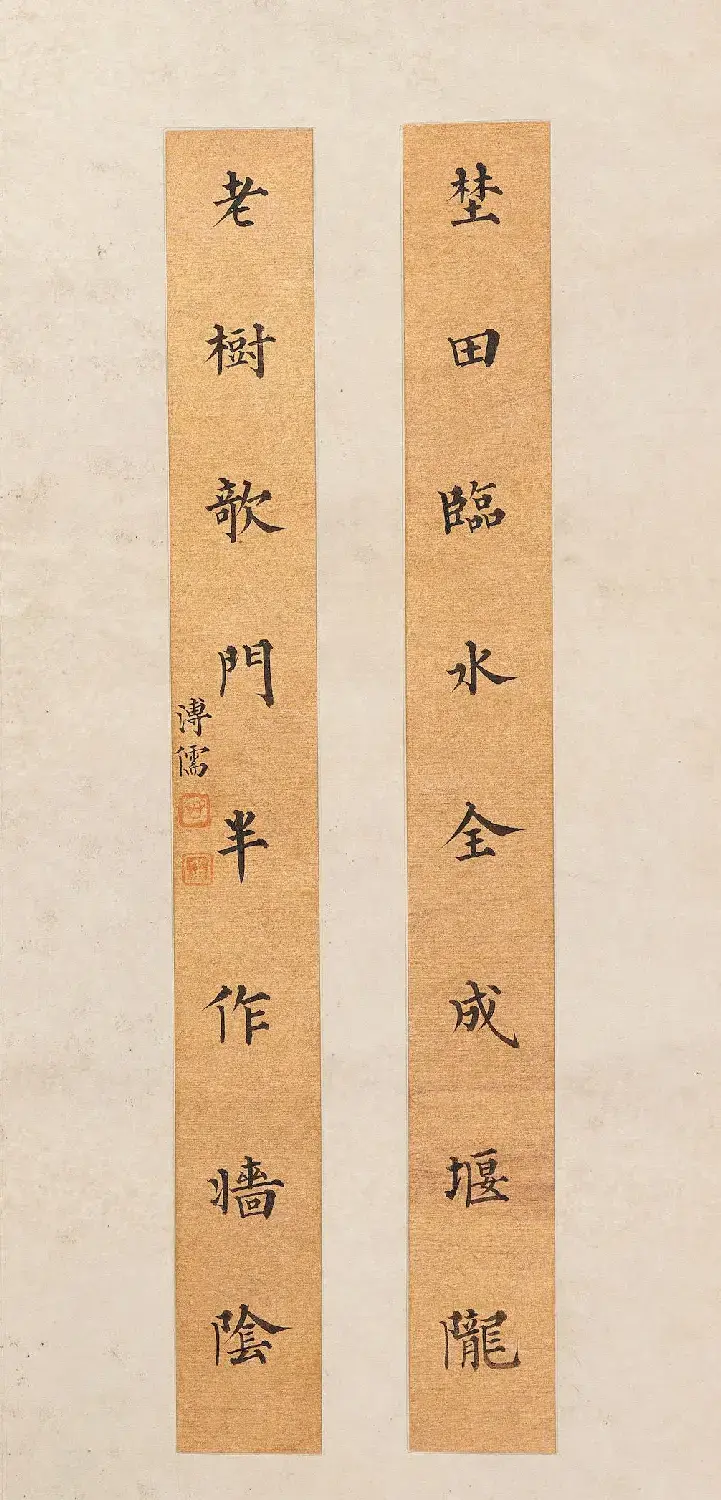 埜田臨水全成堰隴
老樹欹門半作牆陰
溥儒